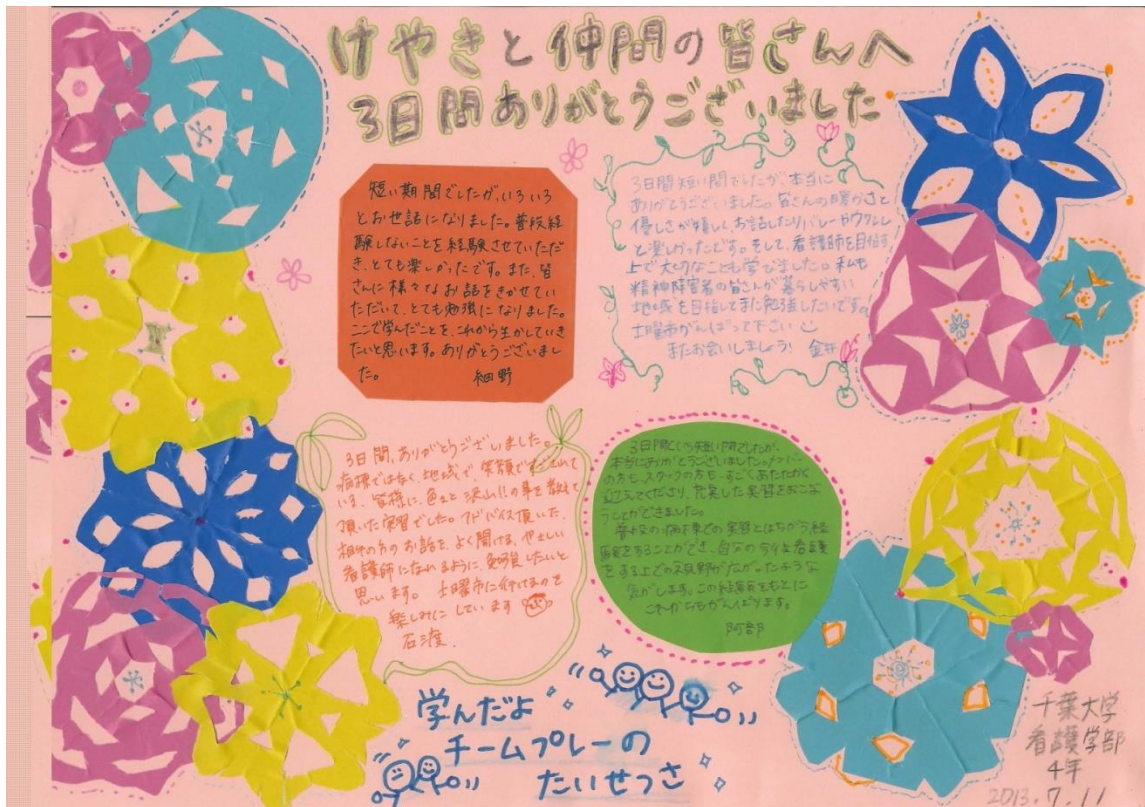 けやきと仲間の皆さんへ
3日間ありがとうございました
短い期間でしたが、いろいろ
とお世話になりました。普段経
験しないことを経験させていただ
き、とても楽しかったです。また、皆
さんに様々なお話をきかせてい
ただいて、とても勉強になりました。
ここで学んだことを、これから生かしていき
たいと思います。ありがとうございまし
た。 細野
3日間短い間でしたが、本当に
ありがとうございました。皆さんの暖かさと
優しさが嬉しく、お話したりバレーやウクレレ
と楽しかったです。そして、看護師を目指す
上で大切なことも学びました。私も
精神障害者の皆さんが暮らしやすい
地域を目指してまた勉強したいです。
土曜市がんばって下さい
またお会いしましょう! 金井
3日間、ありがとうございました。
病棟ではなく、地域で、笑顔ですごされて
いる、皆様に、色々と沢山!!の事を教えて
頂いた実習でした。アドバイス頂いた、
相手の方のお話を、よく聞ける、やさしい
看護師になれるように、勉強したいと
思います。 土曜市に行けるのを
楽しみにしています
石渡.
3日間という短い間でしたが、
本当にありがとうございました。メンバー
の方も、スタッフの方も、すごくあたたかく
迎えてくださり、充実した実習をおこな
うことができました。
普段の病棟での実習とはちがう経
験をすることができ、自分の今後看護
をする上での視野が広がったような
気がします。この経験をもとに
これからもがんばります。
阿部
学んだよ
チームプレーの
たいせつさ
千葉大学
看護学部
4年
2013.7.11